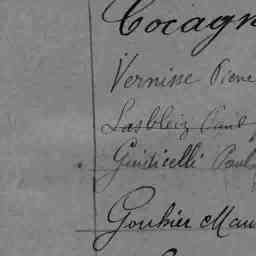 Cocagn
Vernisse Pierre
Lasbleiz Paul
Giudicelli Paul
Gouhier Mau